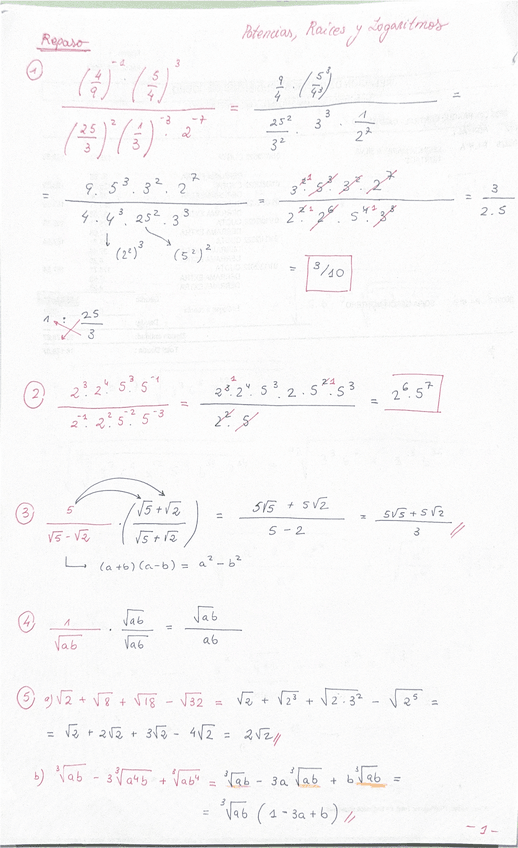 Repaso
Potencias, Raíces y Logaritmos
① ((4/9)^-1 · (5/4)^3) / ((25/3)^2 (1/3)^-3 · 2^-7) = (9/4 · (5^3/4^3)) / (25^2/3^2 · 3^3 · 1/2^7) =
= (9 · 5^3 · 3^2 · 2^7) / (4 · 4^3 · 25^2 · 3^3) = (3^2 · 5^3 · 3^2 · 2^7) / (2^2 · 2^6 · 5^4 · 3^3) = 3 / (2.5)
(2^2)^3 (5^2)^2
= 3/10
1 : 25/3
② (2^3 · 2^4 · 5^3 · 5^-1) / (2^-1 · 2^2 · 5^-2 · 5^-3) = (2^3 · 2^4 · 5^3 · 2 · 5^2 · 5^3) / (2^2 · 5) = 2^6 · 5^7
③ 5 / (√5 - √2) · ((√5 + √2) / (√5 + √2)) = (5√5 + 5√2) / (5 - 2) = (5√5 + 5√2) / 3 //
(a+b)(a-b) = a^2 - b^2
④ 1/√ab · √ab/√ab = √ab/ab
⑤ a) √2 + √8 + √18 - √32 = √2 + √2^3 + √2·3^2 - √2^5 =
= √2 + 2√2 + 3√2 - 4√2 = 2√2 //
b) ³√ab - 3 ³√a^4b + ³√ab^4 = ³√ab - 3a ³√ab + b ³√ab =
= ³√ab (1 - 3a + b) //
- 1 -